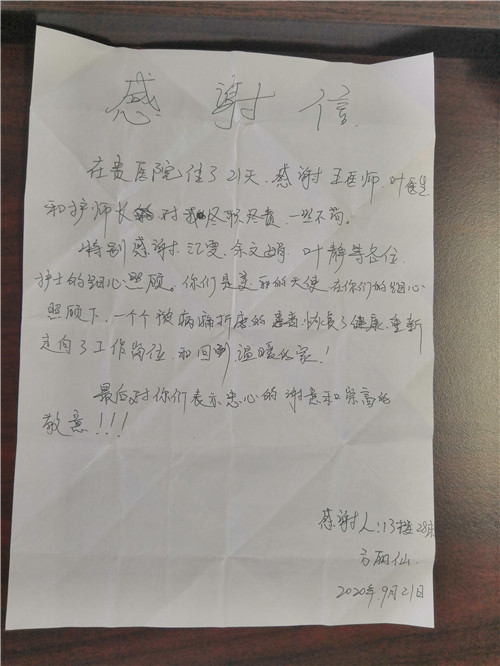 感谢信
在贵医院住了21天.感谢王医师.叶医生
和护师长对我尽职尽责.一丝不苟.
特别感谢.江雯.余文娟.叶静等各位
护士的细心照顾。你们是美丽的天使在你们的细心
照顾下.一个个被病痛折磨的患者.恢复了健康.重新
走向了工作岗位和回到温暖的家！
最后对你们表示忠心的谢意和崇高的
敬意！！！
感谢人:13楼28床
方丽仙
2020年.9月21日